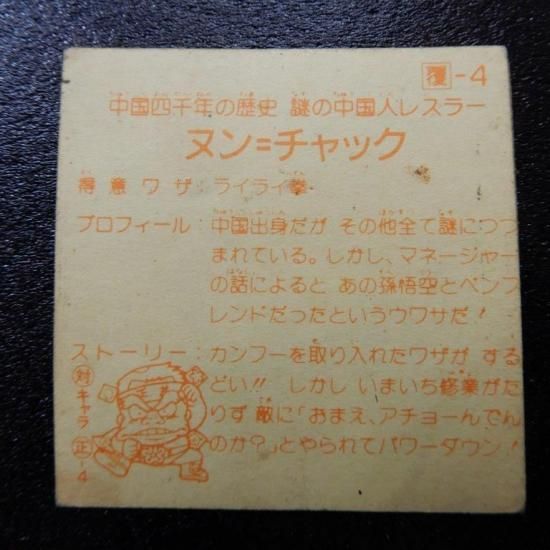 覆-4
中国四千年の歴史 謎の中国人レスラー
ヌン=チャック
得意ワザ:ライライ拳
プロフィール:中国出身だが その他全て謎につつ
まれている。しかし、マネージャー
の話によると あの孫悟空とペンフ
レンドだったというウワサだ!
ストーリー:カンフーを取り入れたワザが する
どい!! しかし いまいち修業がた
りず 敵に「おまえ、アチョーんでん
のか?」とやられてパワーダウン!
対
キャラ
正
-4